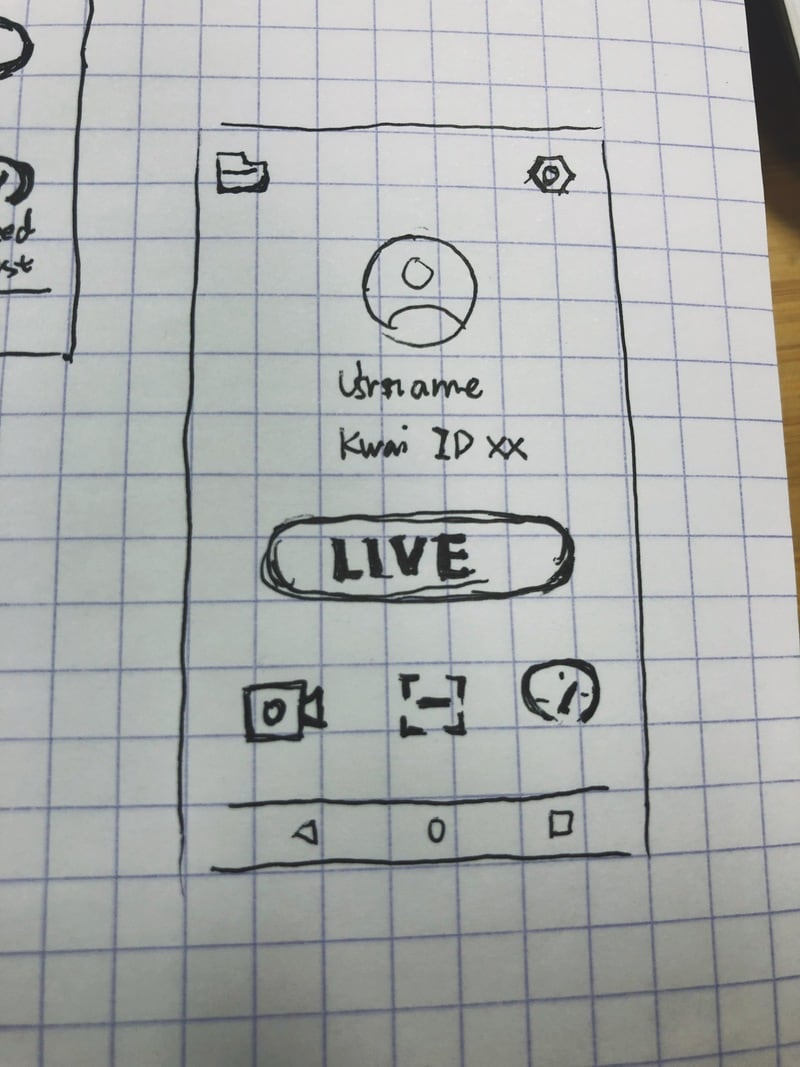 ed
st
Usrname
Kwai ID xx
LIVE